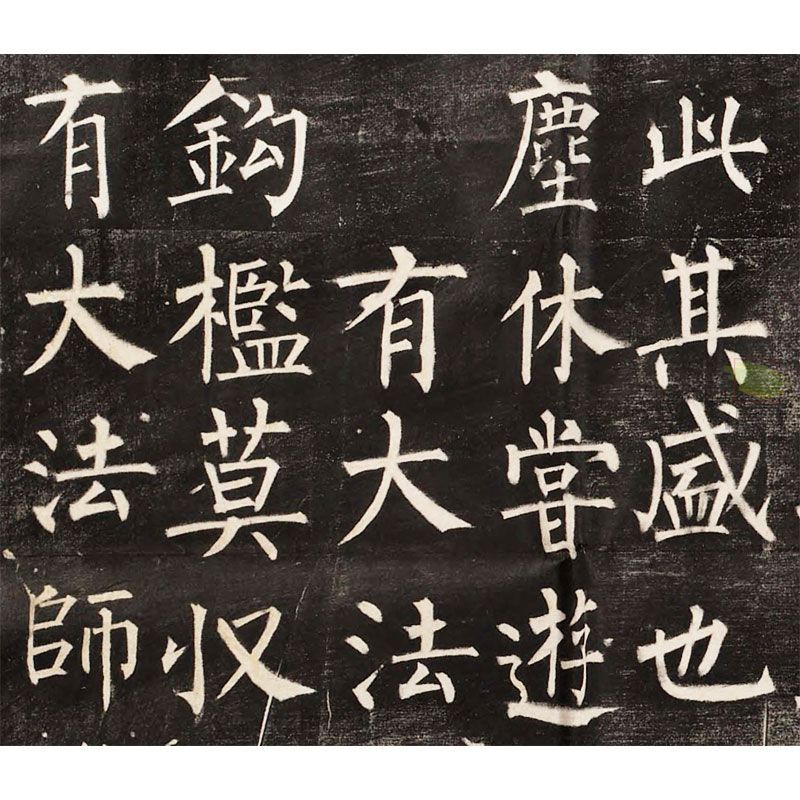 此其盛也
塵休嘗遊
有大法
鈎檻莫収
有大法師